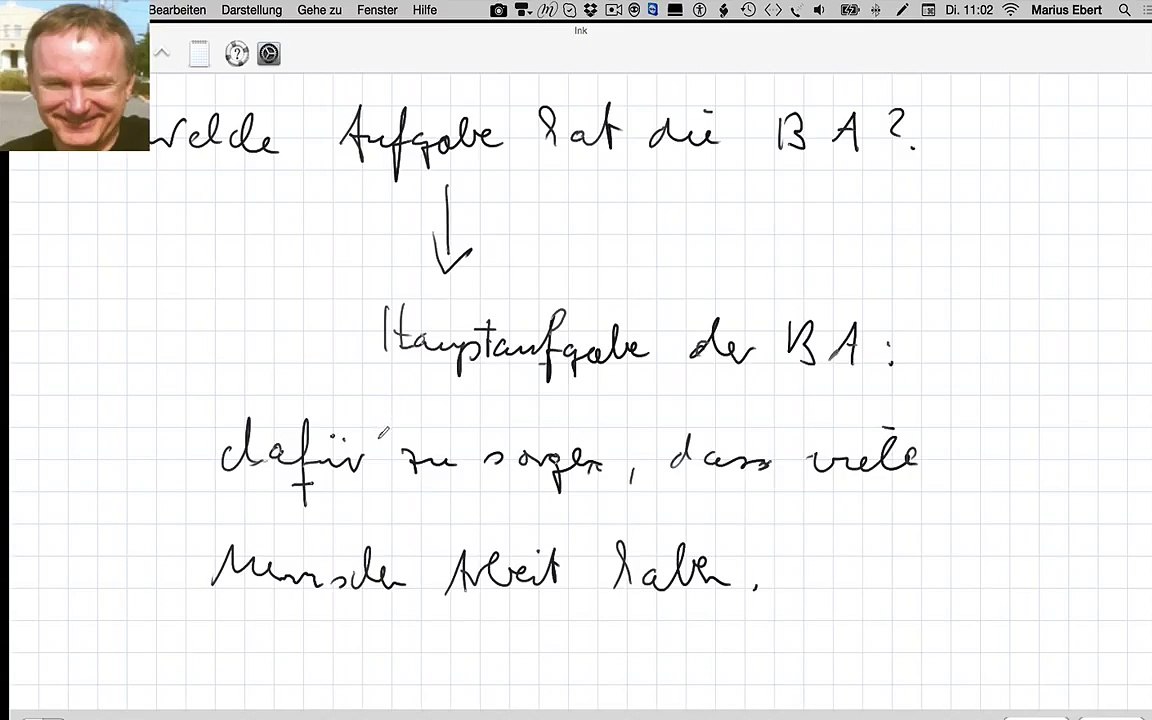 Bearbeiten Darstellung Gehe zu Fenster Hilfe Di. 11:02 Marius Ebert
Ink
Welche Aufgabe hat die BA?
Hauptaufgabe der BA:
dafür zu sorgen, dass viele
Menschen Arbeit haben.